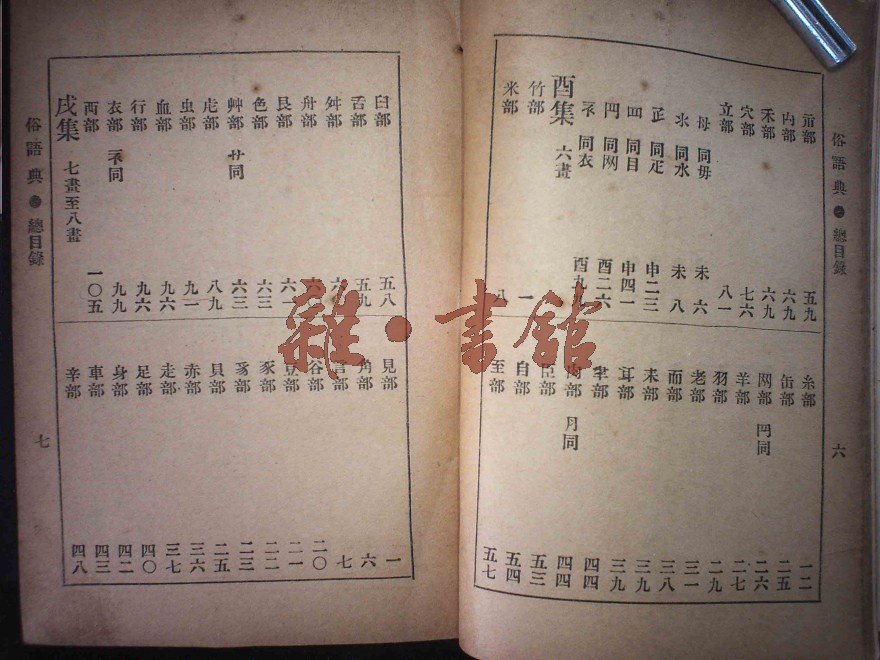 俗語典 總目錄
六
示部 五九
禸部 六九
禾部 六九
穴部 七六
立部 八一
母 同毋 未 六
氺 同水 未 八
𤴔 同疋 申二三
罒 同目 申四一
罓 同网 酉二六
衤 同衣 酉九九
酉集 六畫
竹部 一
米部 八
糸部 一二
缶部 二五
网部 罓同 二六
羊部 二七
羽部 二九
老部 三一
而部 三八
耒部 三九
耳部 三九
聿部 四四
肉部 月同 四四
臣部 五三
自部 五四
至部 五七
臼部 五八
舌部 五九
舛部
舟部
艮部
色部 六三
艸部 艹同 六三
虍部 八九
虫部 九一
血部 九六
行部 九六
衣部 衤同 九九
襾部 一〇五
戌集 七畫至八畫
見部 一
角部 六
言部 七
谷部 二〇
豆部 二一
豕部 二二
豸部 二三
貝部 二五
赤部 三六
走部 三七
足部 四〇
身部 四二
車部 四三
辛部 四八
俗語典 總目錄
七
雜·書館